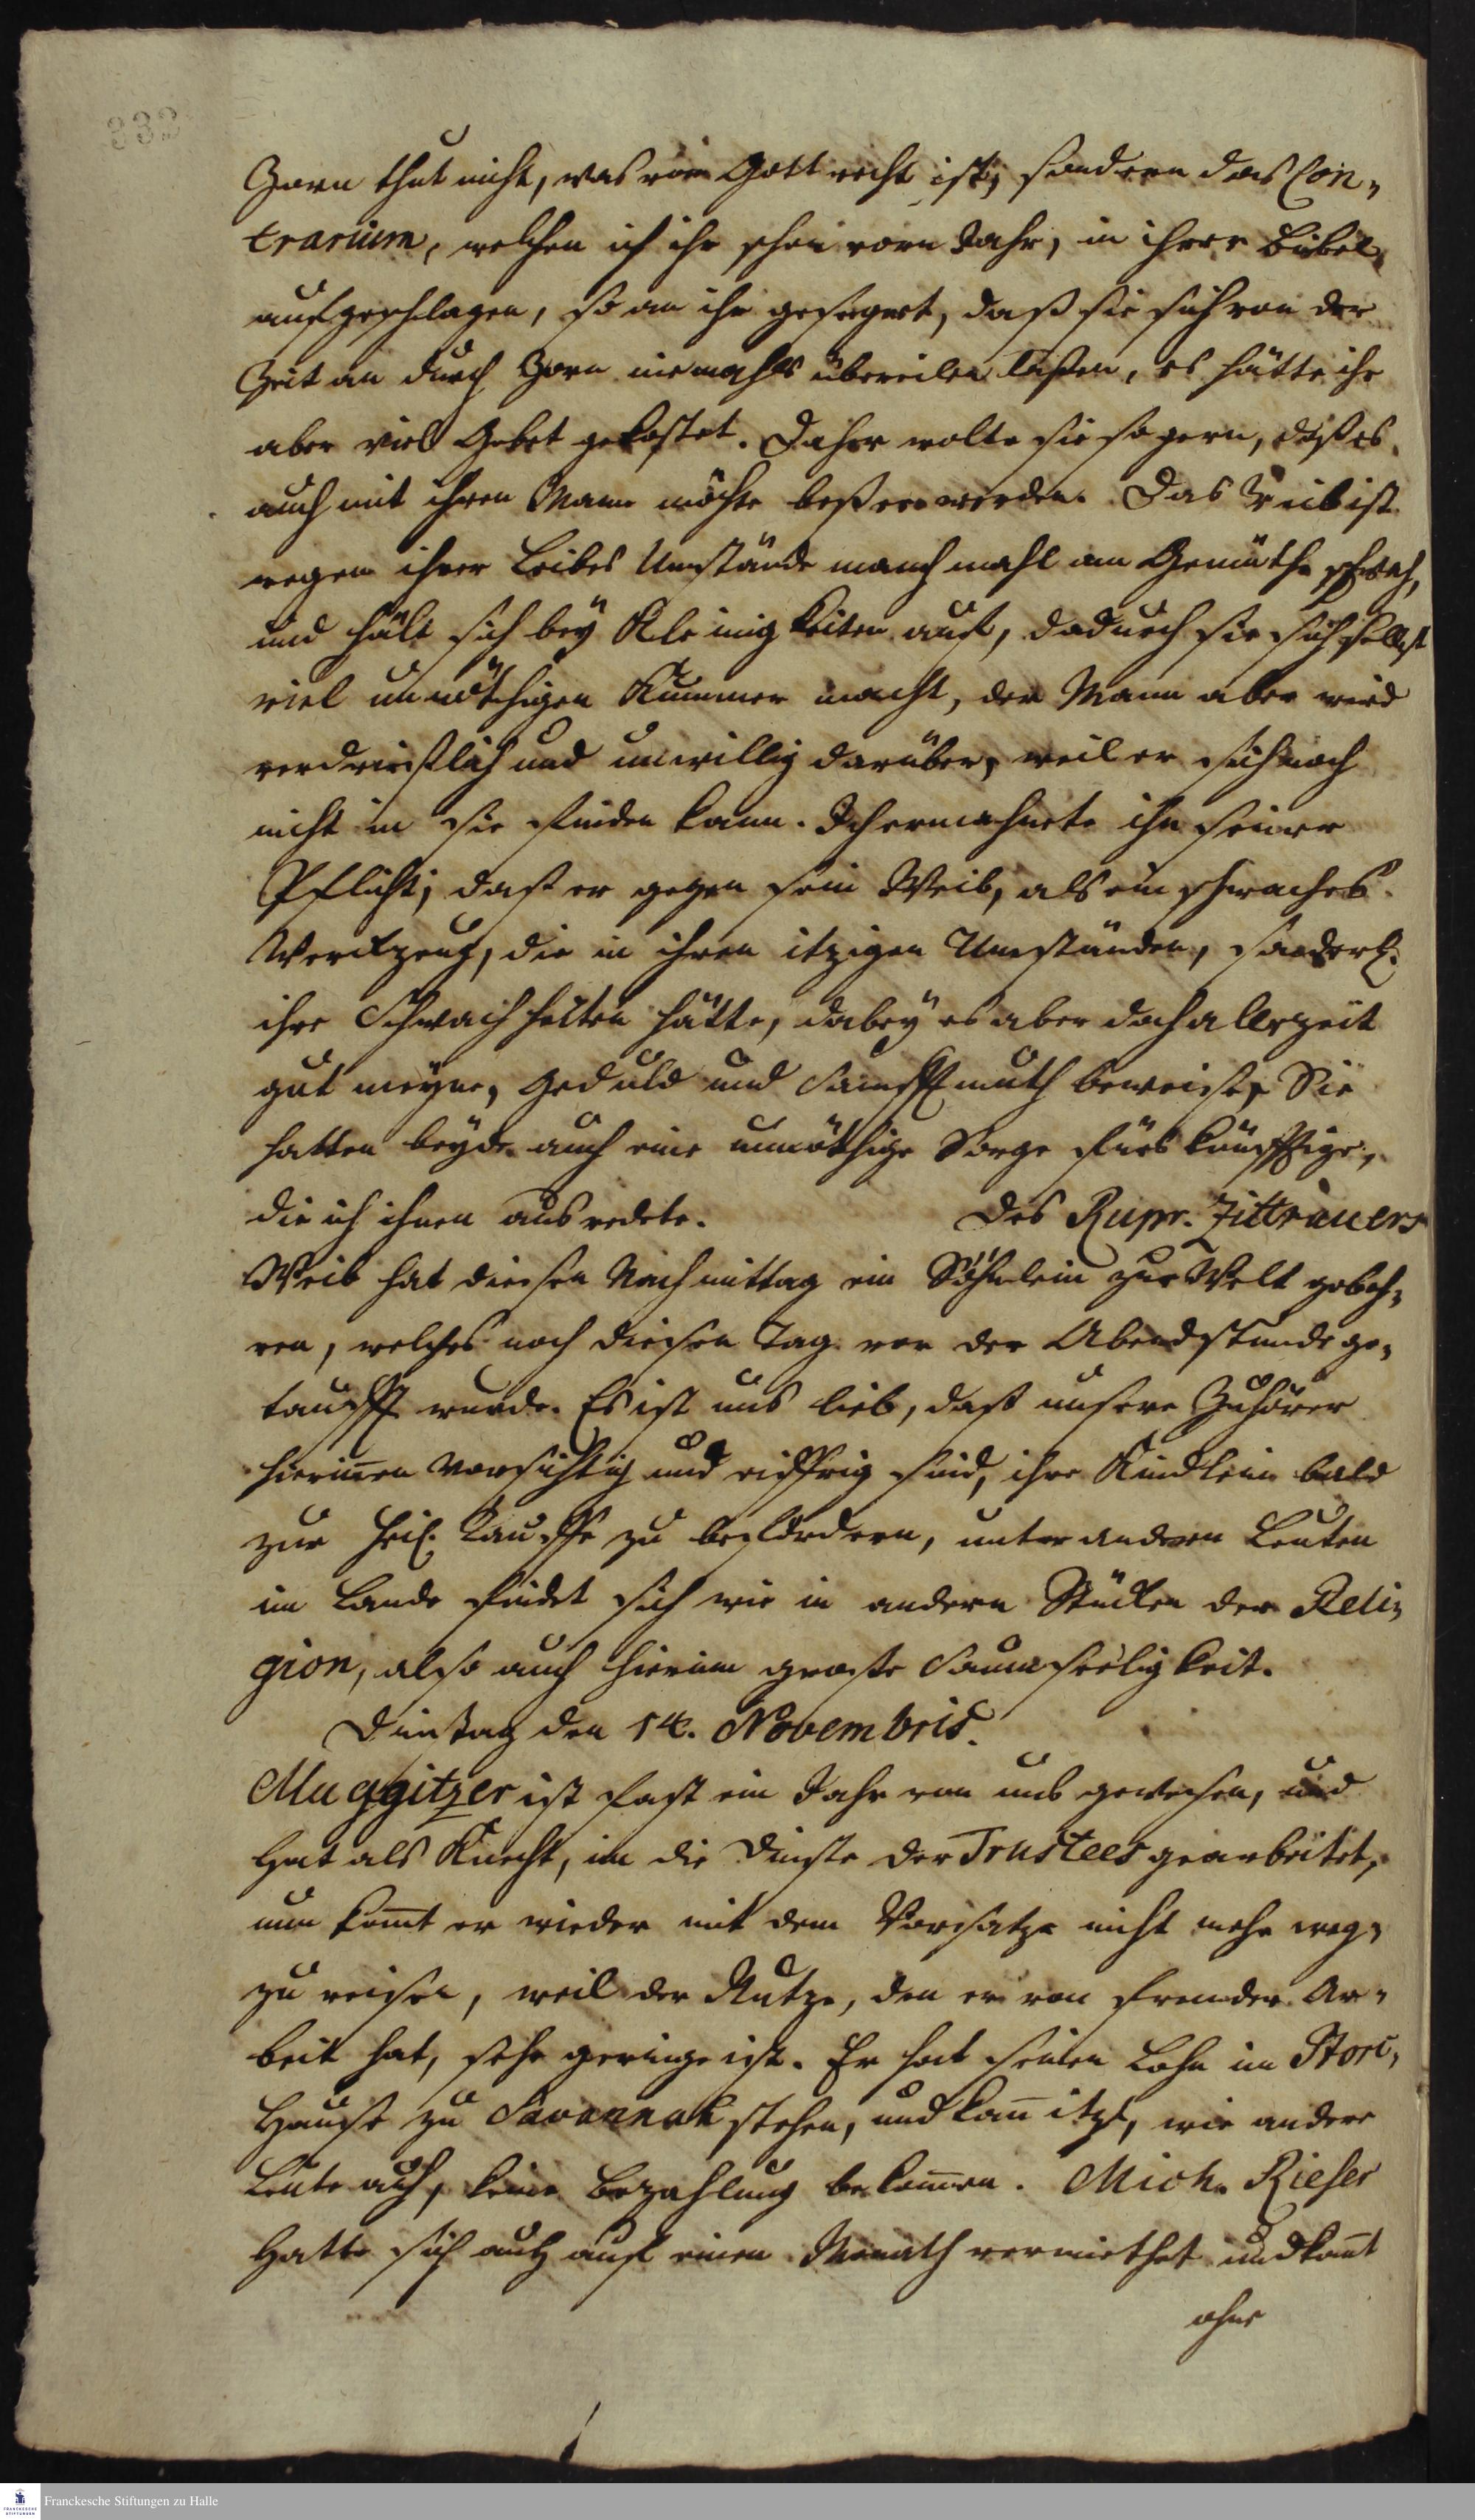 332
Zorn thut nicht, was vor Gott recht ist, sondern das Con-
trarium, welchen ich ihr schon vorn Jahr, in ihrer Bibel,
aufgeschlagen, so an ihr gesegnet, daß sie sich von der
Zeit an durch Zorn niemahls übereilen laßen, es hätte ihr
aber viel Gebet gekostet. Daher wolte sie so gern, daß es
auch mit ihren Mann möchte beßer werden. Das Weib ist
wegen ihrer Leibes Umstände manchmahl am Gemüthe schwach,
und hält sich bey Kleinigkeiten auf, dadurch sie sich selbst
viel unnöthigen Kummer macht, der Mann aber wird
verdrießlich und unwillig darüber, weil er sich noch
nicht in sie finden kann. Ich ermahnete ihn seiner
Pflicht, daß er gegen sein Weib, als ein schwaches
Werckzeug, die in ihren itzigen Umständen, sonderl.
ihre Schwachheiten hätte, dabey es aber doch allezeit
gut meyne, Geduld und Sanfftmuth beweise. Sie
hatten beyde auch eine unnöthige Sorge fürs künfftige,
die ich ihnen ausredete. Des Rupr. Zittrauers
Weib hat diesen Nachmittag ein Söhnlein zur Welt geboh-
ren, welches noch diesen Tag vor der Abendstunde ge-
taufft wurde. Es ist uns lieb, daß unsere Zuhörer
hierinnen vorsichtig und eiffrig sind, ihre Kindlein bald
zur heil. Tauffe zu befördern, unter andern Leuten
im Lande findet sich wie in andern Stücken der Reli-
gion, also auch hierinn große Saumseeligkeit.
Dinstag den 14. Novembris.
Muggitzer ist fast ein Jahr von uns gewesen, und
hat als Knecht, in die Dinste der Trustees gearbeitet,
nun komt er wieder mit dem Vorsatze nicht mehr weg-
zu reisen, weil der Nutze, den er von fremder Ar-
beit hat, sehr geringe ist. Er hat seinen Lohn im Store-
Hause zu Savannah stehen, und kan itzt, wie andere
Leute auch, keine Bezahlung bekommen. Mich. Rieser
hatte sich auch auf einen Monath vermiethet und komt
ohne
Franckesche Stiftungen zu Halle
FRANCKESCHE
STIFTUNGEN